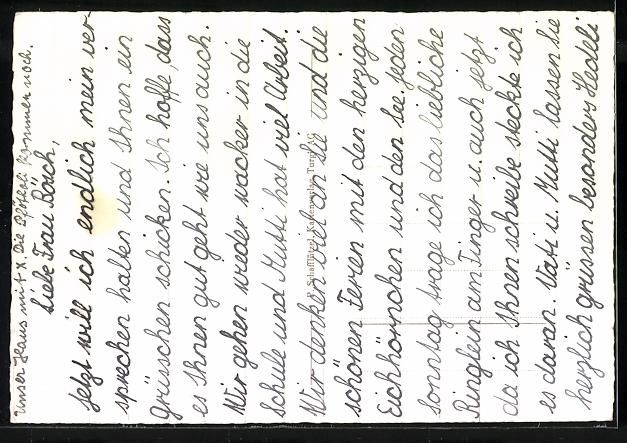 Unser Haus mit X. Die Fötteli kommen noch.
Liebe Frau Rösch,
Jetzt will ich endlich mein ver-
sprechen halten und Ihnen ein
Grüsschen schicken. Ich hoffe, dass
es Ihnen gut geht wie uns auch.
Wir gehen wieder wacker in die
Schule und Mutti hat viel Arbeit.
Wir denken viel an Sie und die
schönen Ferien mit den herzigen
Eichhörnchen und den See. Jeden
Sonntag trage ich das liebliche
Ringlein am Finger u. auch jetzt
da ich Ihnen schreibe steckte ich
es daran. Vati u. Mutti lassen Sie
herzlich grüssen besonders Hedeli
Kartenverlag, Turgi AG